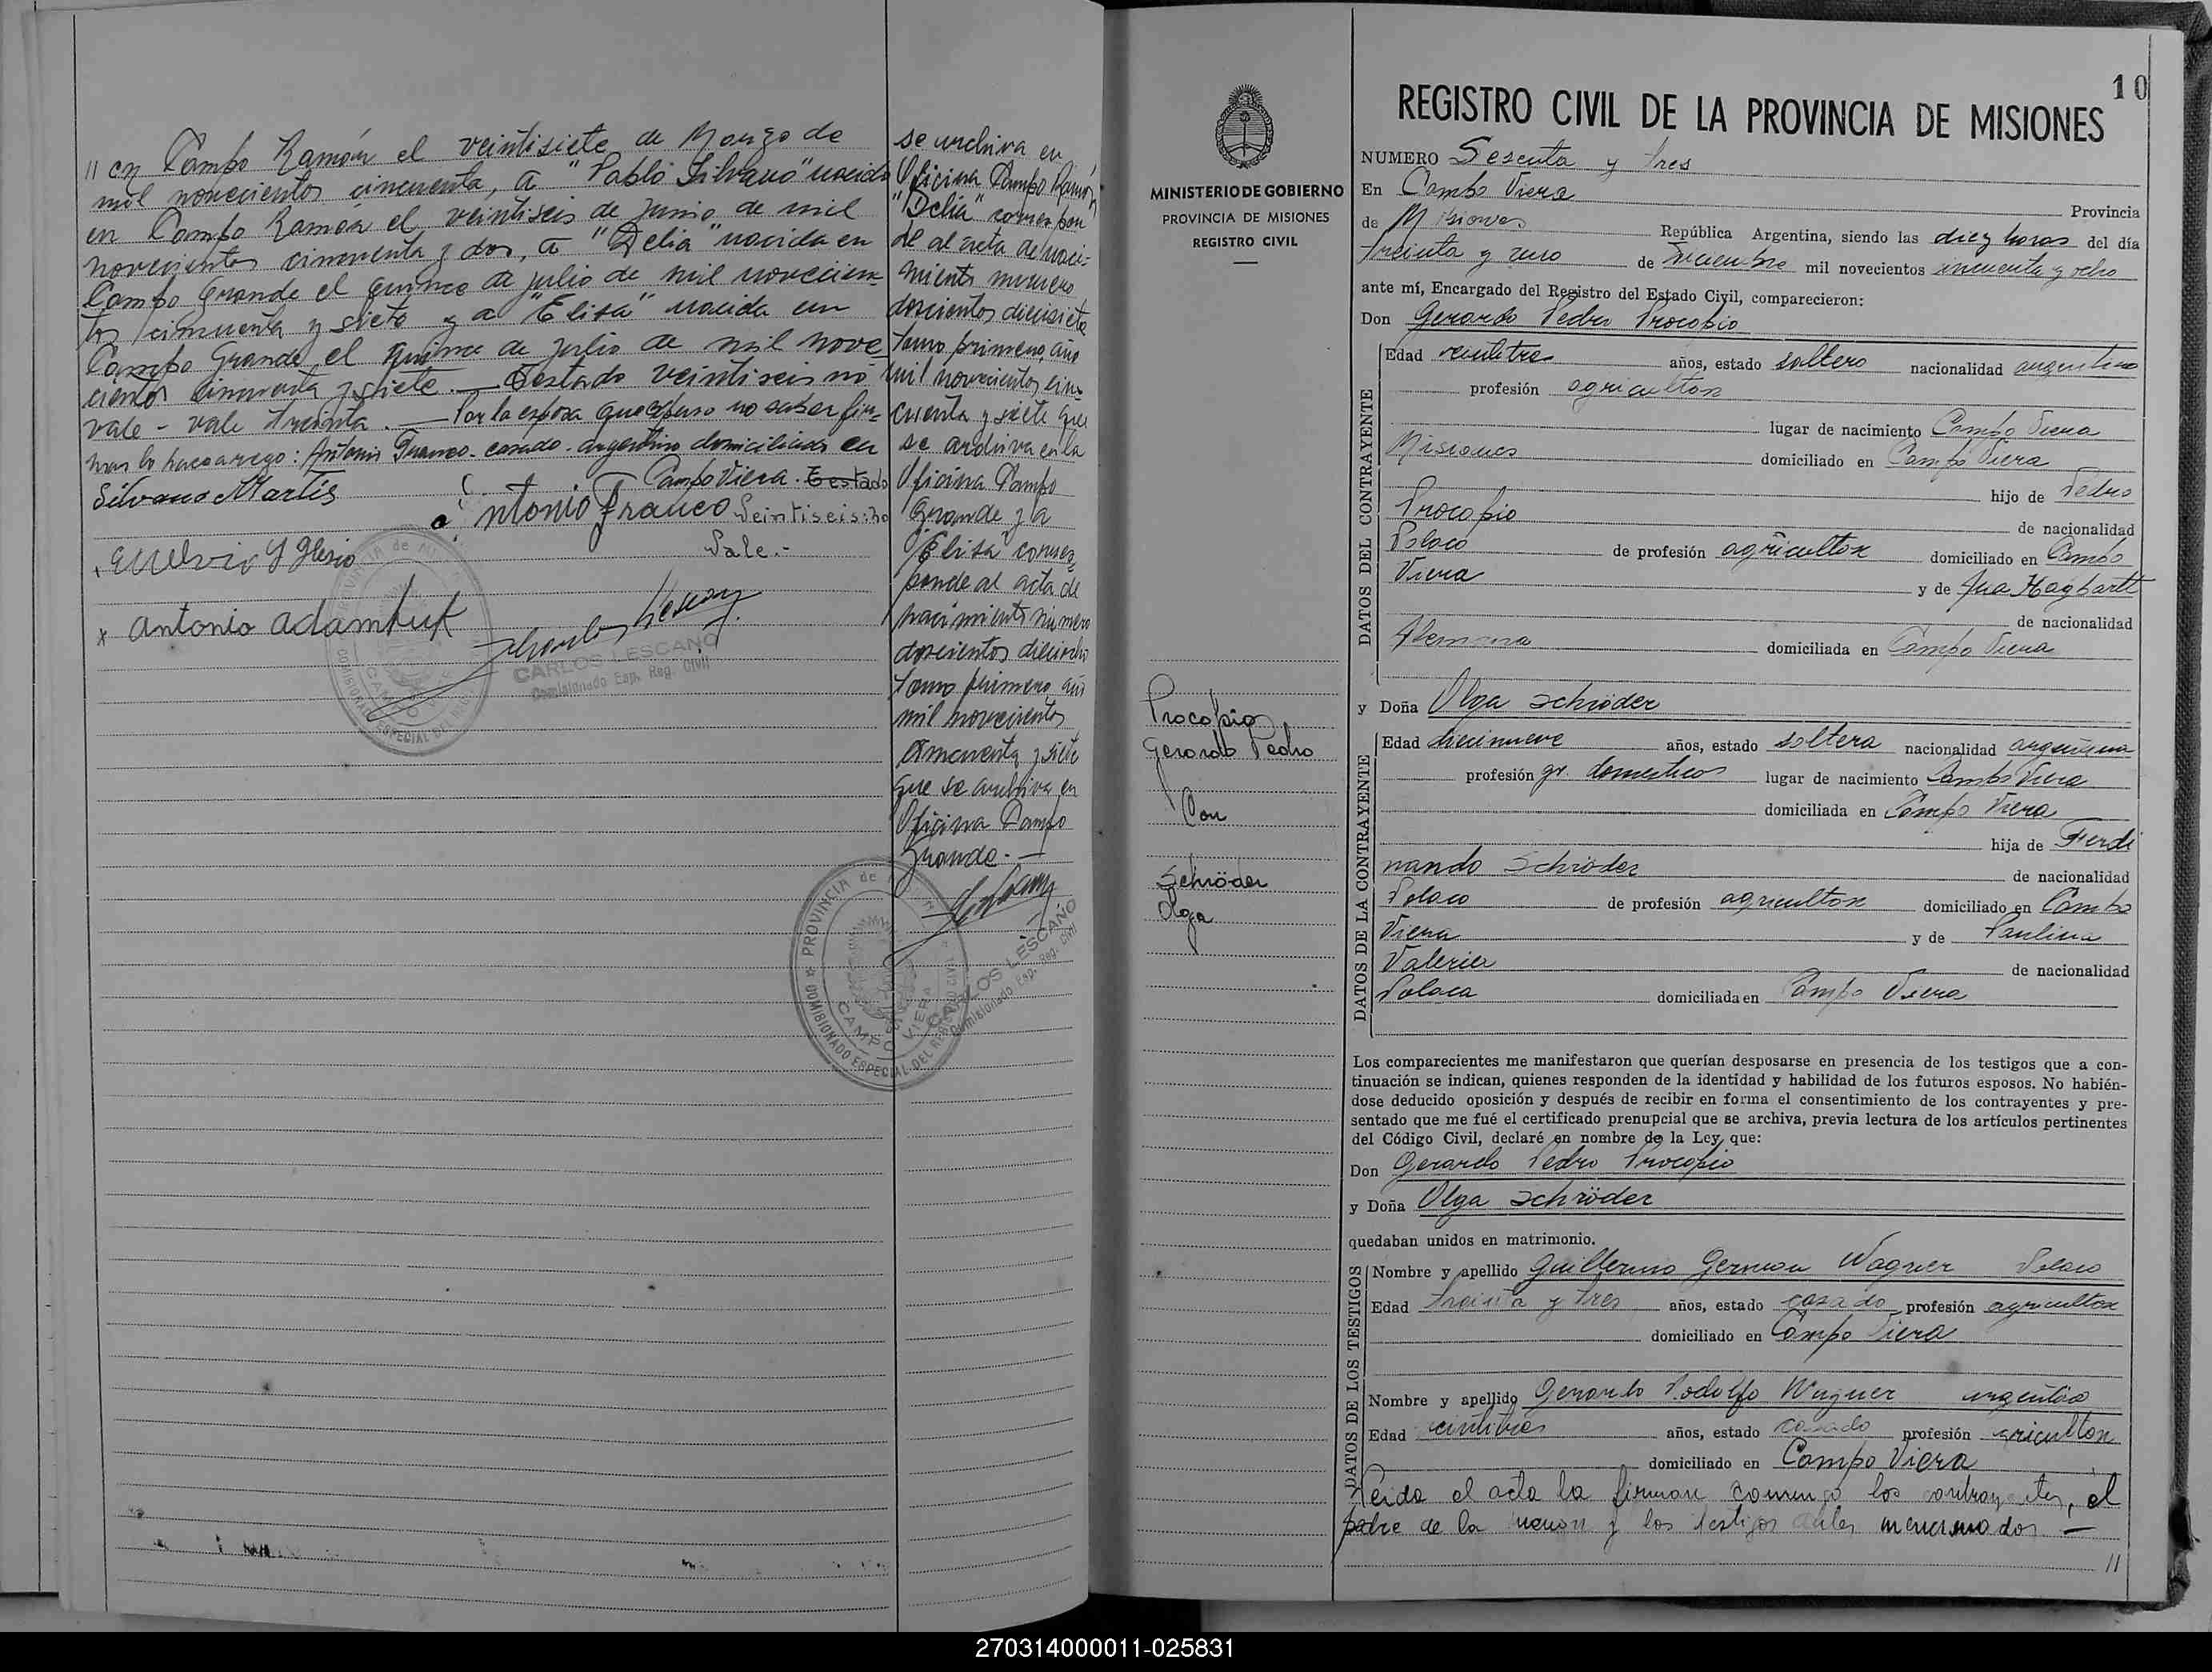 " en Campo Ramón el veintisiete de Marzo de
mil novecientos cincuenta, a "Pablo Silvano" nacido
en Campo Ramon el veintiseis de junio de mil
novecientos cincuenta y dos, a "Delia" nacida en
Campo Grande el quince de julio de mil novecien-
tos cincuenta y siete y a "Elisa" nacida en
Campo Grande el quince de julio de mil nove
cientos cincuenta y siete.— Testado veintiseis no
vale - vale treinta.— Por la esposa que expuso no saber fir-
mar lo hace a ruego: Antonio Franco - casado - argentino domiciliado en
Campo Viera. Testado
Silvano Martis
Antonio Franco Veintiseis: no
Vale.-
Antonio adamtuk
CARLOS LESCANO
Comisionado Esp. Reg. Civil
PROVINCIA de MISIONES
CAMPO VIERA
COMISIONADO ESPECIAL DEL REGISTRO CIVIL
se archiva en
Oficina Campo Ramón
"Delia" correspon
de al acta de naci-
miento numero
doscientos diecisiete
tomo primero, año
mil novecientos cin-
cuenta y siete que
se archiva en la
Oficina Campo
Grande y a
"Elisa" corres-
ponde al acta de
nacimiento numero
doscientos dieciocho
tomo primero, año
mil novecientos
cincuenta y siete
que se archiva en
Oficina Campo
Grande.—
CARLOS LESCANO
Comisionado Esp. Reg. Civil
PROVINCIA de MISIONES
CAMPO VIERA
COMISIONADO ESPECIAL DEL REGISTRO CIVIL
MINISTERIO DE GOBIERNO
PROVINCIA DE MISIONES
REGISTRO CIVIL
Procopio
Gerardo Pedro
Con
Schröder
Olga
10
REGISTRO CIVIL DE LA PROVINCIA DE MISIONES
NUMERO Sesenta y tres
En Campo Viera Provincia
de Misiones República Argentina, siendo las diez horas del día
treinta y uno de Diciembre mil novecientos cincuenta y ocho
ante mí, Encargado del Registro del Estado Civil, comparecieron:
Don Gerardo Pedro Procopio
DATOS DEL CONTRAYENTE
Edad veintitres años, estado soltero nacionalidad argentino
profesión agricultor
lugar de nacimiento Campo Viera
Misiones domiciliado en Campo Viera
hijo de Pedro
Procopio de nacionalidad
Polaco de profesión agricultor domiciliado en Campo
Viera y de
de nacionalidad
Alemana domiciliada en Campo Viera
y Doña Olga Schröder
DATOS DE LA CONTRAYENTE
Edad diecinueve años, estado soltera nacionalidad argentina
profesión qr. domesticos lugar de nacimiento Campo Viera
domiciliada en Campo Viera
hija de Ferdi
nando Schröder de nacionalidad
Polaco de profesión agricultor domiciliado en Campo
Viera y de Paulina
Valerier de nacionalidad
Polaca domiciliada en Campo Viera
Los comparecientes me manifestaron que querían desposarse en presencia de los testigos que a con-
tinuación se indican, quienes responden de la identidad y habilidad de los futuros esposos. No habién-
dose deducido oposición y después de recibir en forma el consentimiento de los contrayentes y pre-
sentado que me fué el certificado prenupcial que se archiva, previa lectura de los artículos pertinentes
del Código Civil, declaré en nombre de la Ley que:
Don Gerardo Pedro Procopio
y Doña Olga Schröder
quedaban unidos en matrimonio.
DATOS DE LOS TESTIGOS
Nombre y apellido Guillermo German Wagner Polaco
Edad treinta y tres años, estado casado profesión agricultor
domiciliado en Campo Viera
Nombre y apellido Gerardo Rodolfo Wagner argentino
Edad veintitres años, estado casado profesión agricultor
domiciliado en Campo Viera
Leida el acta la firman conmigo los contrayentes, el
padre de la menor y los testigos antes mencionados —
"
270314000011-025831